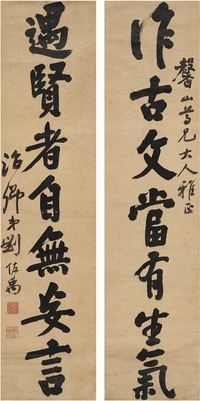 作古文當有生氣
馨山尊兄大人雅正
遇賢者自無妄言
治卿弟劉佐禹